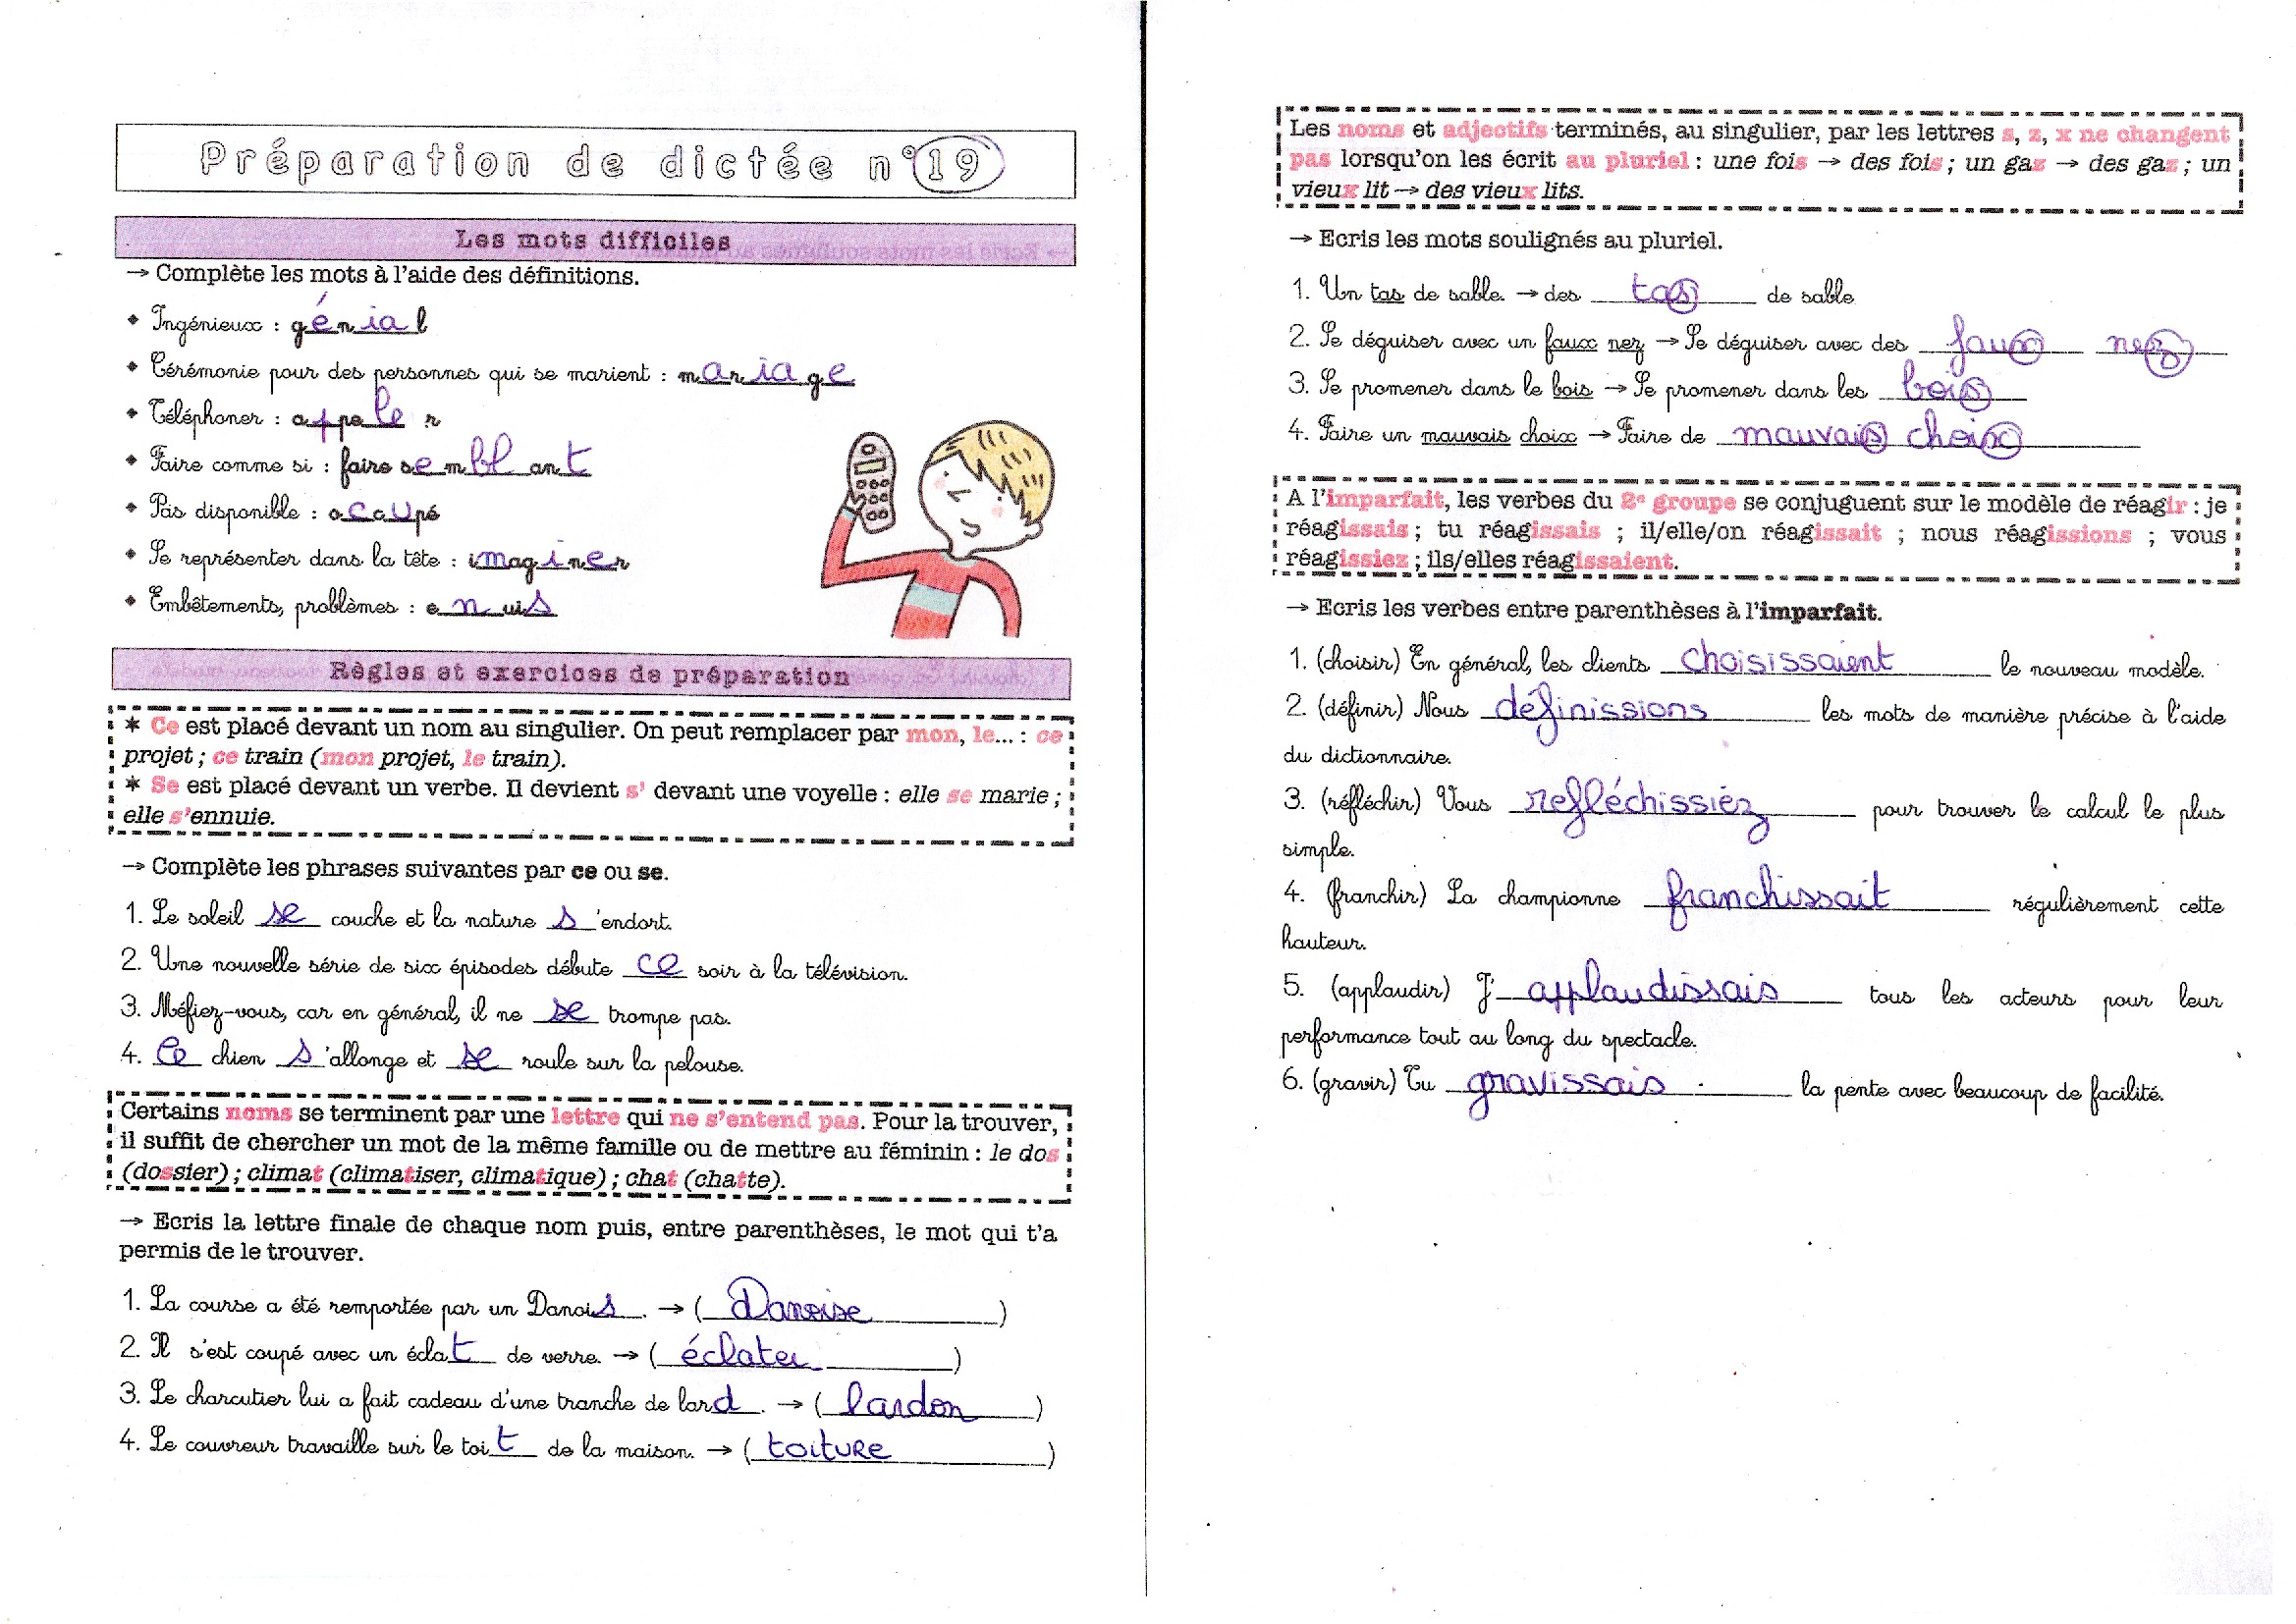 Préparation de dictée n°19
Les mots difficiles
→ Complète les mots à l'aide des définitions.
• Ingénieux : génial
• Cérémonie pour des personnes qui se marient : mariage
• Téléphoner : appeler
• Faire comme si : faire semblant
• Pas disponible : occupé
• Se représenter dans la tête : imaginer
• Embêtements, problèmes : ennuis
Règles et exercices de préparation
* Ce est placé devant un nom au singulier. On peut remplacer par mon, le... : ce
projet ; ce train (mon projet, le train).
* Se est placé devant un verbe. Il devient s' devant une voyelle : elle se marie ;
elle s'ennuie.
→ Complète les phrases suivantes par ce ou se.
1. Le soleil se couche et la nature s'endort.
2. Une nouvelle série de six épisodes débute ce soir à la télévision.
3. Méfiez-vous, car en général, il ne se trompe pas.
4. Ce chien s'allonge et se roule sur la pelouse.
Certains noms se terminent par une lettre qui ne s'entend pas. Pour la trouver,
il suffit de chercher un mot de la même famille ou de mettre au féminin : le dos
(dossier) ; climat (climatiser, climatique) ; chat (chatte).
→ Ecris la lettre finale de chaque nom puis, entre parenthèses, le mot qui t'a
permis de le trouver.
1. La course a été remportée par un Danois. → (Danoise)
2. Il s'est coupé avec un éclat de verre. → (éclater)
3. Le charcutier lui a fait cadeau d'une tranche de lard. → (lardon)
4. Le couvreur travaille sur le toit de la maison. → (toiture)
Les noms et adjectifs terminés, au singulier, par les lettres s, z, x ne changent
pas lorsqu'on les écrit au pluriel : une fois → des fois ; un gaz → des gaz ; un
vieux lit → des vieux lits.
→ Ecris les mots soulignés au pluriel.
1. Un tas de sable. → des tas de sable
2. Se déguiser avec un faux nez → Se déguiser avec des faux nez
3. Se promener dans le bois → Se promener dans les bois
4. Faire un mauvais choix → Faire de mauvais choix
A l'imparfait, les verbes du 2e groupe se conjuguent sur le modèle de réagir : je
réagissais ; tu réagissais ; il/elle/on réagissait ; nous réagissions ; vous
réagissiez ; ils/elles réagissaient.
→ Ecris les verbes entre parenthèses à l'imparfait.
1. (choisir) En général, les clients choisissaient le nouveau modèle.
2. (définir) Nous définissions les mots de manière précise à l'aide
du dictionnaire.
3. (réfléchir) Vous refléchissiez pour trouver le calcul le plus
simple.
4. (franchir) La championne franchissait régulièrement cette
hauteur.
5. (applaudir) J'applaudissais tous les acteurs pour leur
performance tout au long du spectacle.
6. (gravir) Tu gravissais la pente avec beaucoup de facilité.